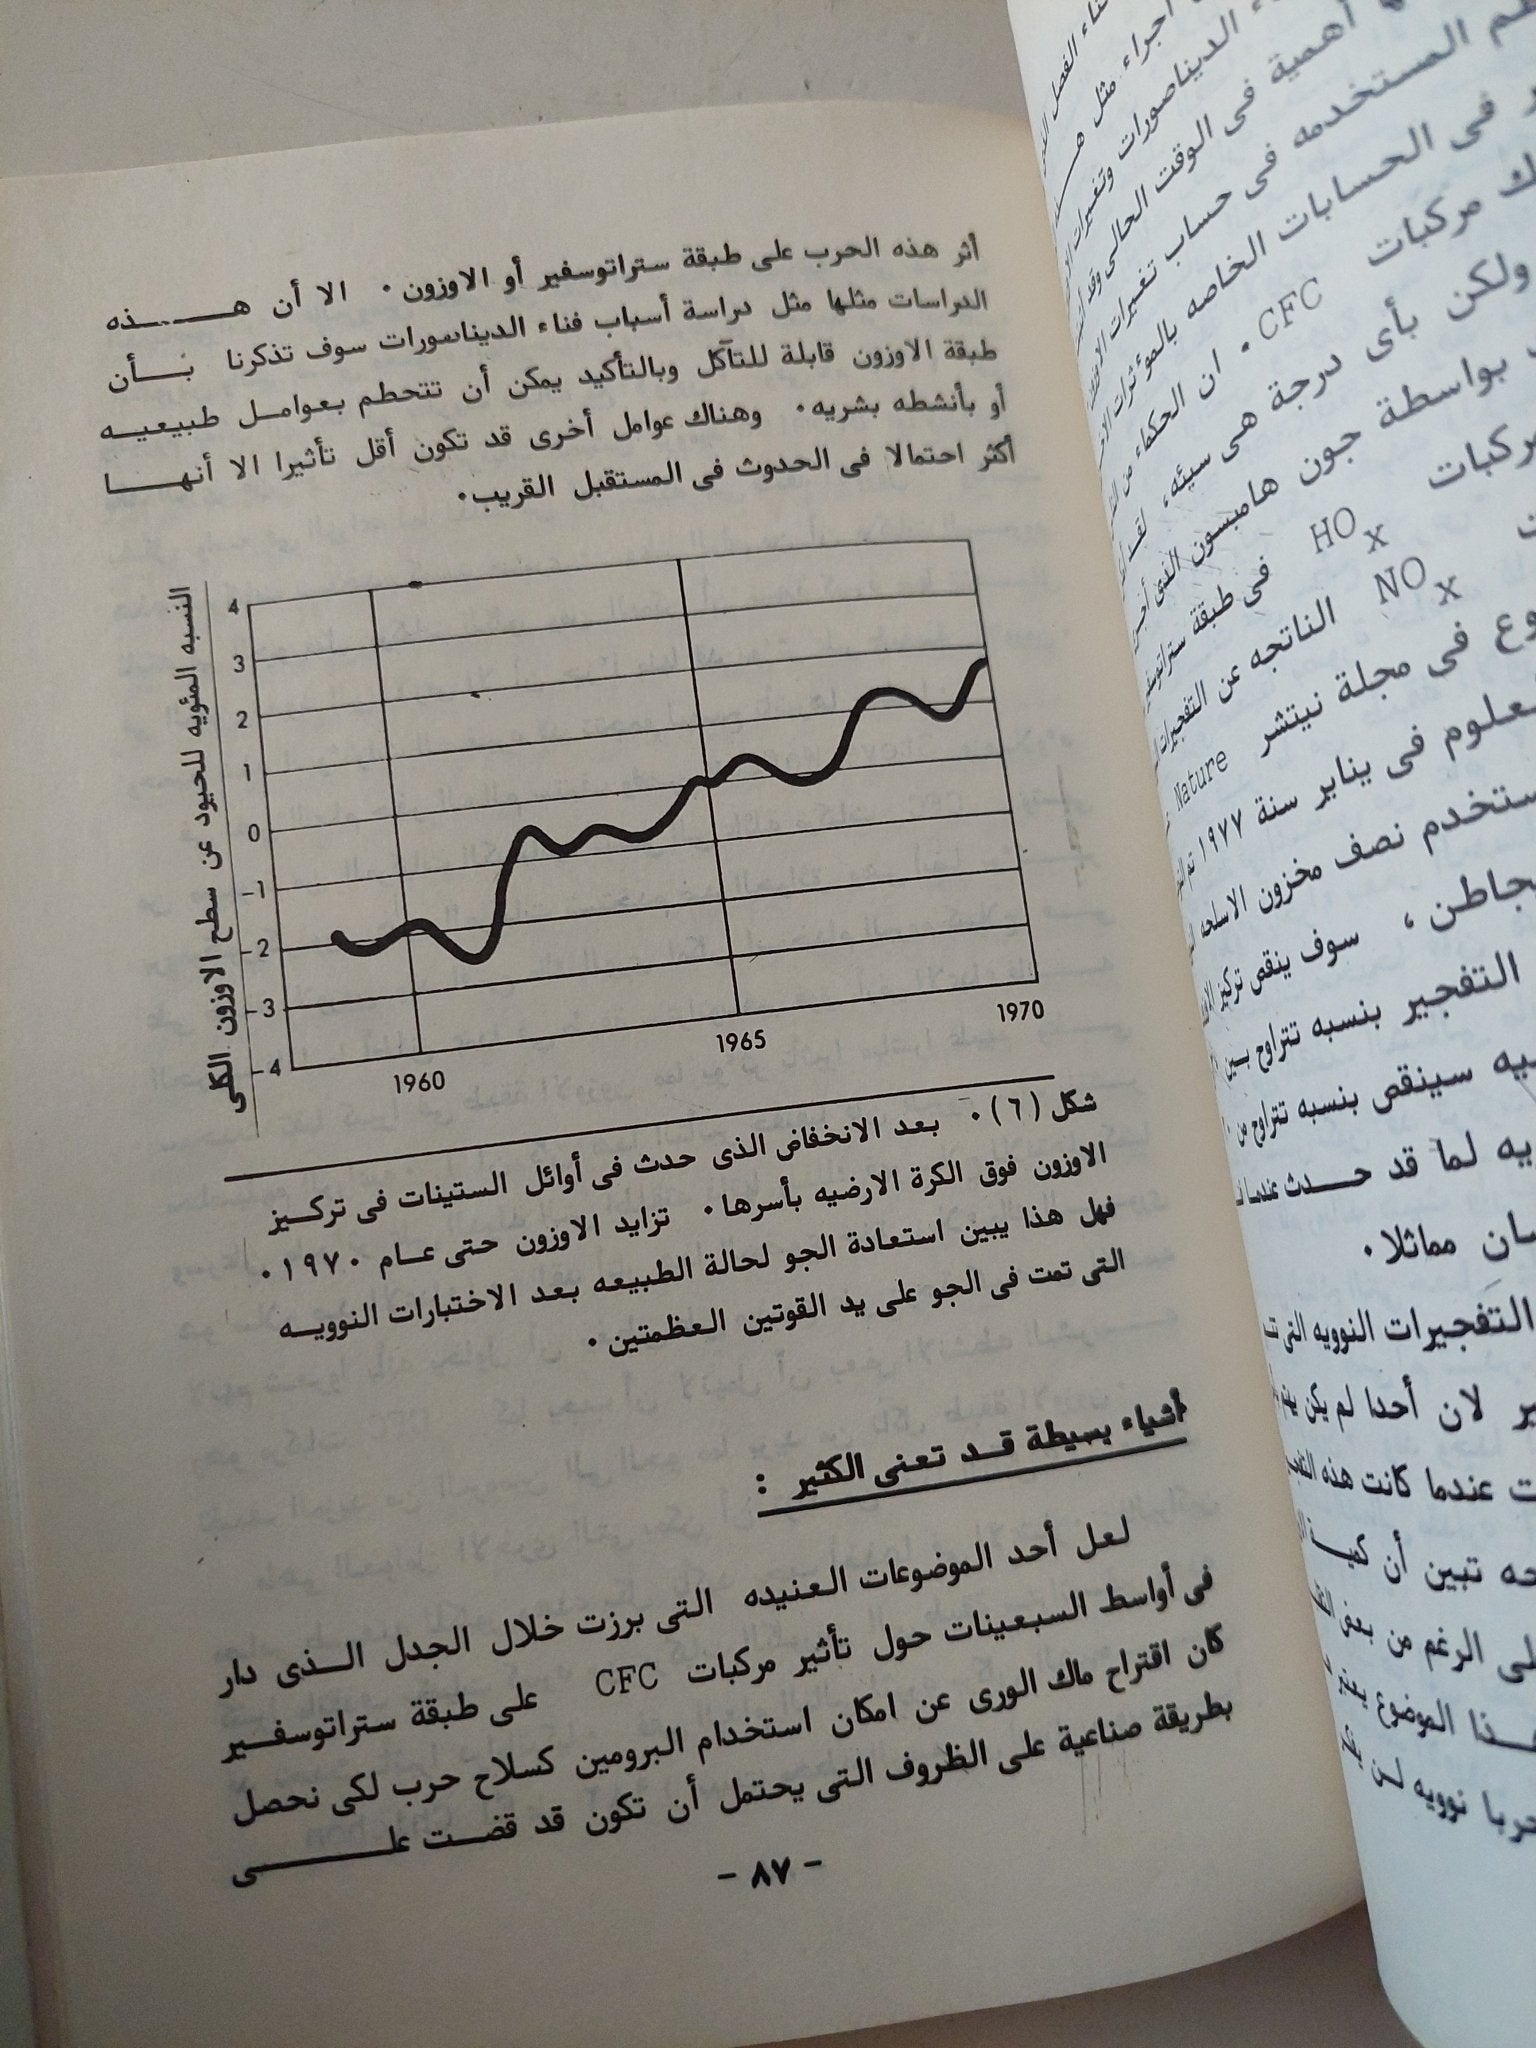 أثر هذه الحرب على طبقة ستراتوسفير أو الاوزون . الا أن هـــــذه
الدراسات مثلها مثل دراسة أسباب فناء الديناصورات سوف تذكرنا بـــأن
طبقة الاوزون قابلة للتآكل وبالتأكيد يمكن أن تتحطم بعوامـل طبيعيـه
أو بأنشطه بشريه . وهناك عوامل أخرى قد تكون أقل تأثيرا الا أنهـــا
أكثر احتمالا فى الحدوث فى المستقبل القريب .
النسبه المئويه للحيود عن سطح الاوزون الكلى
4
3
2
1
0
-1
-2
-3
-4
1960
1965
1970
شكل (٦) . بعد الانخفاض الذى حدث فى أوائل الستينات فى تركــيز
الاوزون فوق الكرة الارضيه بأسرها . تزايد الاوزون حتى عــام ١٩٧٠ .
فهل هذا يبين استعادة الجو لحالة الطبيعه بعد الاختبارات النوويــه
التى تمت فى الجو على يد القوتين العظمتين .
أشياء بسيطة قـد تعنى الكثير :
لعل أحد الموضوعات العنيده التى برزت خلال الجدل الــذى دار
فى أواسط السبعينات حول تأثير مركبات CFC على طبقة ستراتوسفــير
كان اقتراح ماك الورى عن امكان استخدام البرومين كسلاح حرب لكى نحصل
بطريقة صناعية على الظروف التى يحتمل أن تكون قد قضــت علـــــى
- ٨٧ -
اجراء مثل هـــ
الديناصورات وتغيرات
أهمية فى الوقت الحالى وقد
المستخدمه فى حساب تغيرات
فى الحسابات الخاصه بالموءثرات
مركبات CFC . ان الحكماء من
ولكن بأى درجة هى سيئه ، لقد
بواسطة جون هامبسون الذى
مركبات HOx فى طبقة
NOx الناتجه عن التفجيرات
فى مجلة نيتشر Nature
فى يناير سنة ١٩٧٧
نصف مخزون الاسلحه
سوف ينقص تركيز
التفجير بنسبه تتراوح بــين
سينقص بنسبه تتراوح من
لما قد حـــدث
مماثلا .
التفجيرات النوويه التى
لان أحدا لم يكن
عندما كانت هذه
تبين أن
الرغم من بعض
الموضوع
نوويه لــن